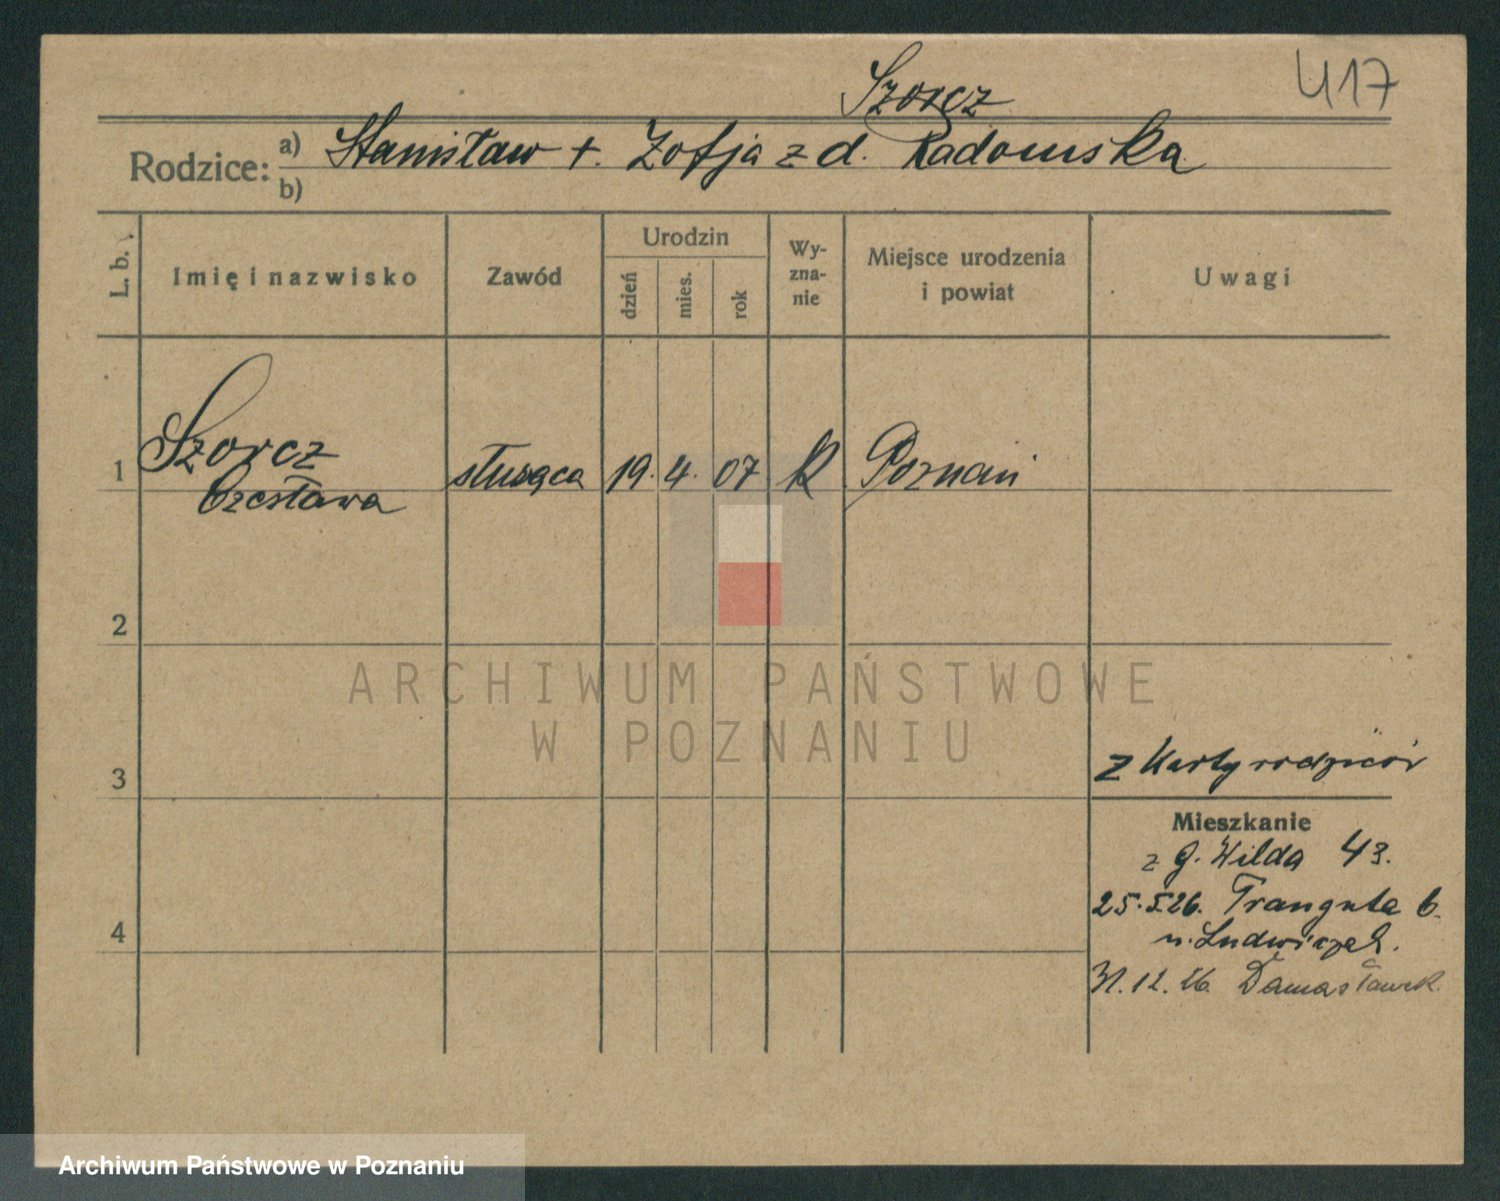 Szorcz
417
Rodzice: a) Stanisław +. Zofja z d. Radomska
b)
L. b.
Imię i nazwisko
Zawód
Urodzin
dzień
mies.
rok
Wy-
zna-
nie
Miejsce urodzenia
i powiat
Uwagi
1 Szorcz służąca 19. 4. 07 k Poznań
Czesława
2
ARCHIWUM PAŃSTWOWE
W POZNANIU
z karty rodziców
3
Mieszkanie
z G. Wilda 43.
25.5.26. Trauguta 6.
u. Ludwiczak.
4
31.12.26. Damasławek.
Archiwum Państwowe w Poznaniu